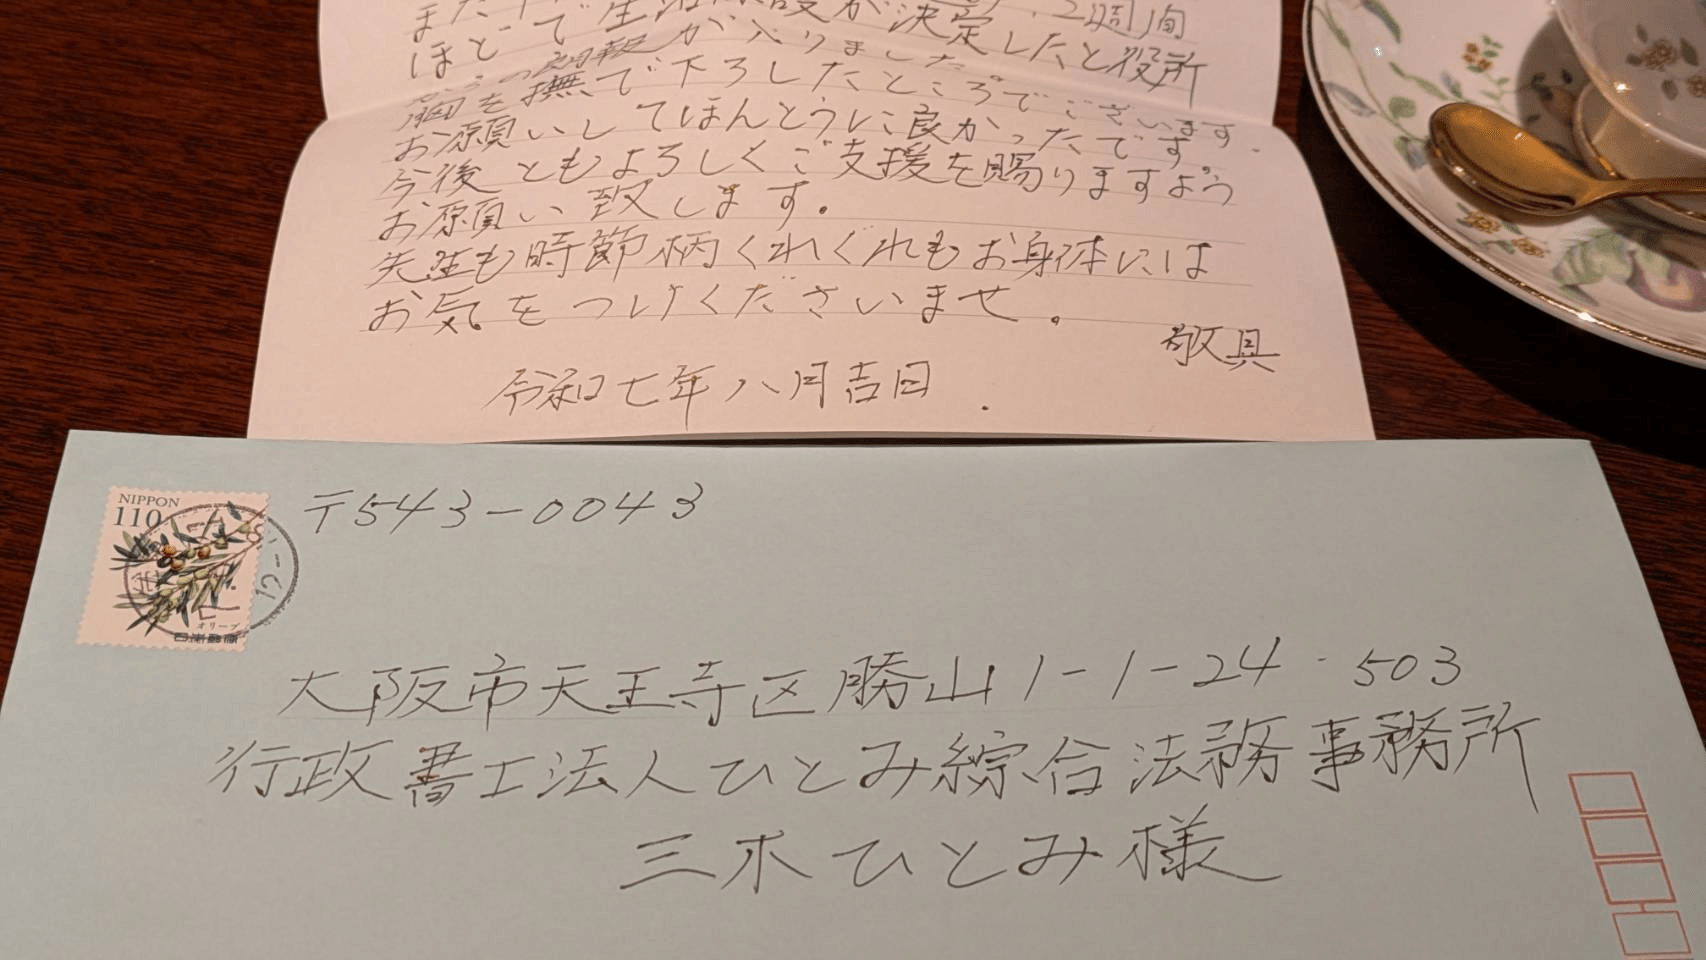 2週間
ほどで生活保護が決定したと役所
からの知らせが入りました
胸を撫で下ろしたところでございます.
お願いしてほんとうに良かったです。
今後ともよろしくご支援を賜りますよう
お願い致します。
先生も時節柄くれぐれもお身体には
お気をつけくださいませ。
敬具
令和七年八月吉日.
NIPPON
110
オリーブ
日本郵便
〒543-0043
大阪市天王寺区勝山1-1-24-503
行政書士法人ひとみ綜合法務事務所
三木ひとみ様